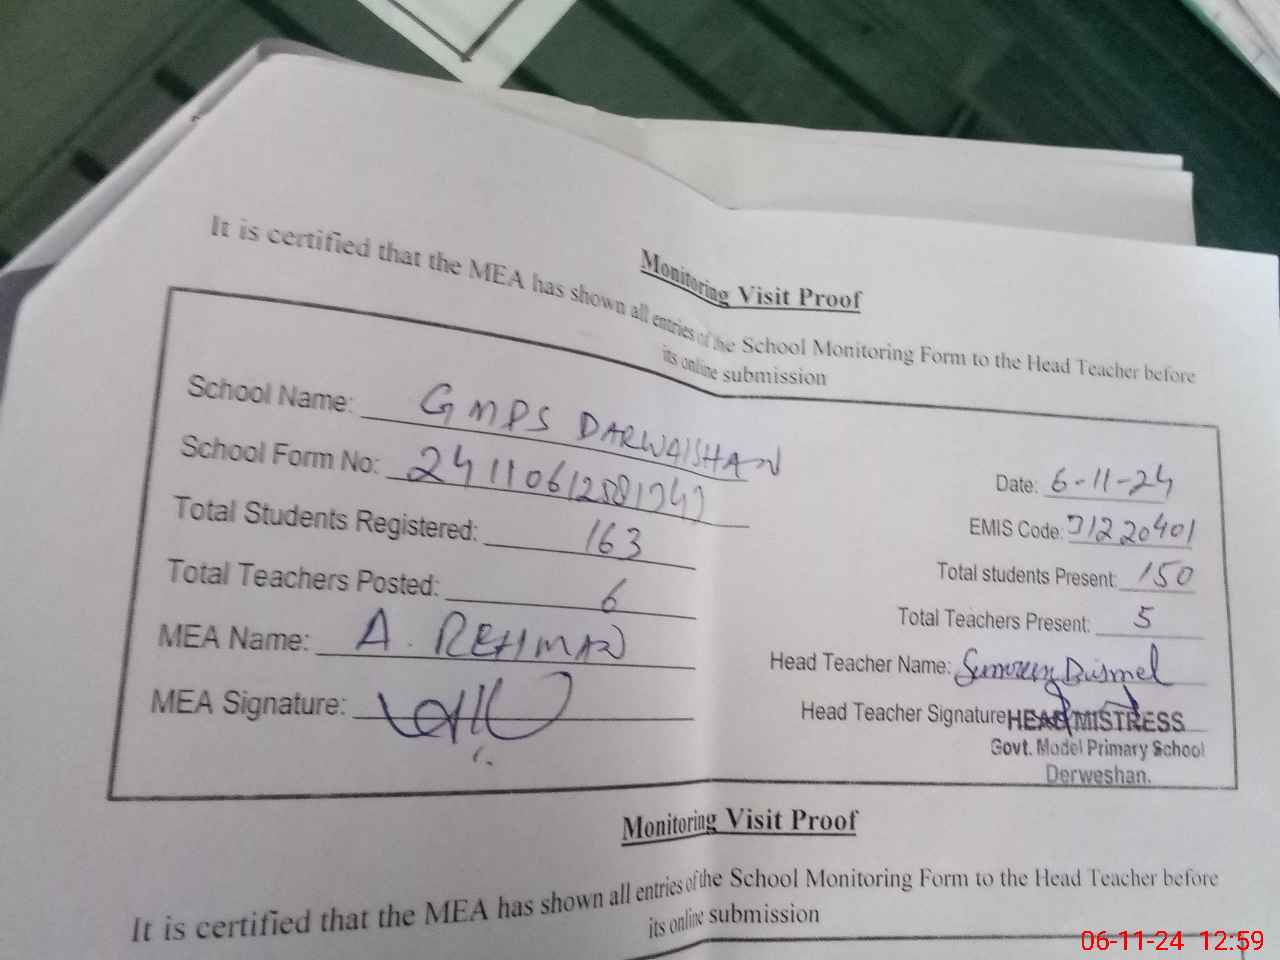 Monitoring Visit Proof
It is certified that the MEA has shown all entries of the School Monitoring Form to the Head Teacher before
its online submission
School Name: GMPS DARWAISHAN
Date: 6-11-24
School Form No:
EMIS Code: 31220401
Total Students Registered: 163
Total students Present: 150
Total Teachers Posted: 6
Total Teachers Present: 5
MEA Name: A. REHMAN
Head Teacher Name:
MEA Signature:
Head Teacher Signature HEAD MISTRESS
Govt. Model Primary School
Derweshan.
Monitoring Visit Proof
It is certified that the MEA has shown all entries of the School Monitoring Form to the Head Teacher before
its online submission
06-11-24 12:59